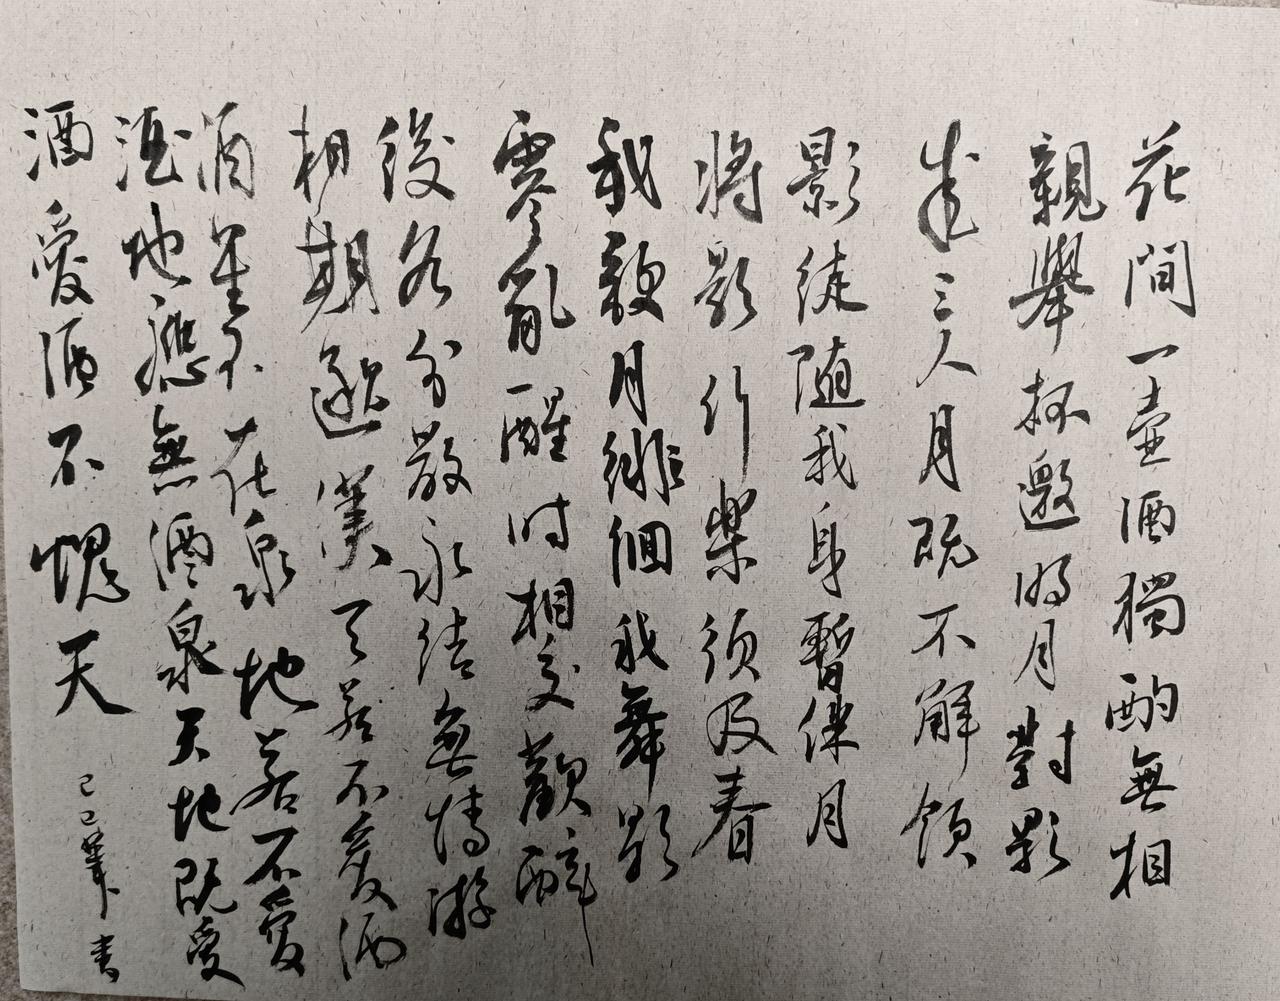 花間一壺酒獨酌無相
親舉杯邀明月對影
成三人月既不解飲
影徒随我身暫伴月
將影行樂須及春
我歌月徘徊我舞影
零亂醒时相交歡醉
後各分散永結無情游
相期邈漢天若不愛酒
酒星不在泉地若不愛
酒地應無酒泉天地既愛
酒愛酒不愧天
書